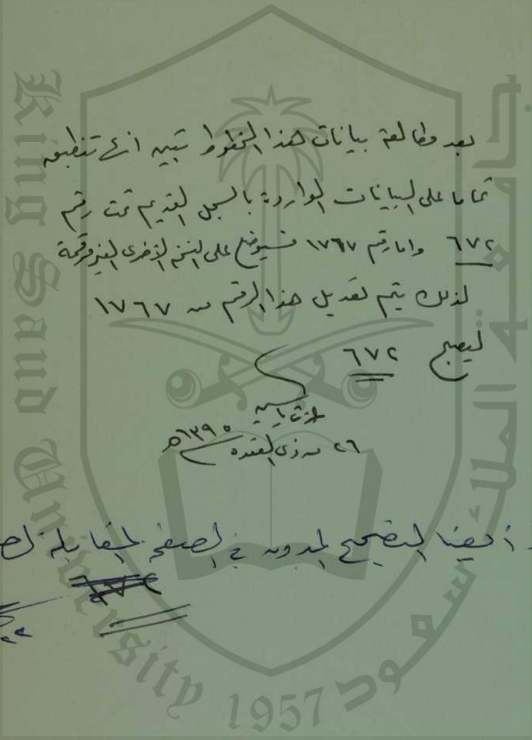 بعد مطالعة بيانات هذا المخطوط تبين انها تنطبق
تماما على البيانات الواردة بالسجل القديم تحت رقم
٦٧٢ واما رقم ١٧٦٧ فسيوضع على النسخ الأخرى الغير مرقمة
لذلك يتم تعديل هذا الرقم من ١٧٦٧
ليصبح ٦٧٢
٢٦ من ذي القعدة ١٣٩٥ه
أيضا التصحيح المدون في الصفحة المقابلة
King Saud University
جامعة الملك سعود
1957